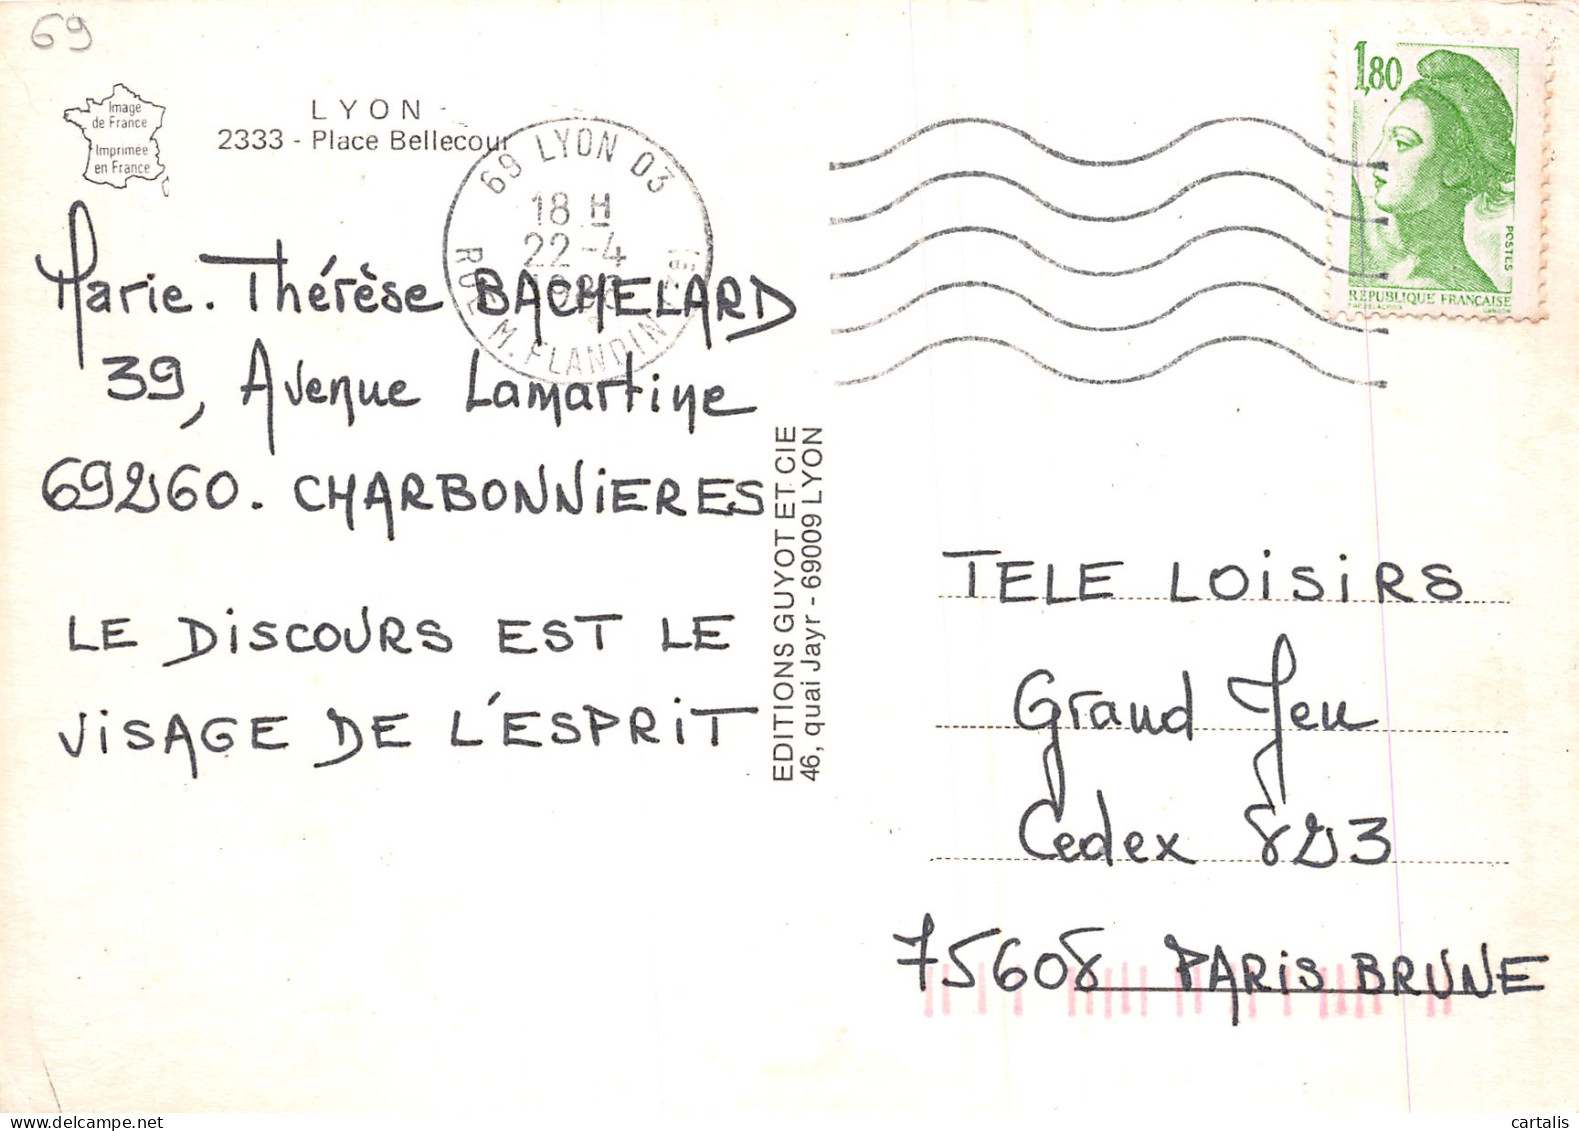 69
Image
de France
Imprimée
en France
LYON
2333 - Place Bellecour
69 LYON 03
18 H
22-4
RUE M. FLANDIN
Marie. Thérèse BACHELARD
39, Avenue Lamartine
69260. CHARBONNIERES
LE DISCOURS EST LE
VISAGE DE L'ESPRIT
EDITIONS GUYOT ET CIE
46, quai Jayr - 69009 LYON
1,80
POSTES
REPUBLIQUE FRANÇAISE
GANDON
TELE LOISIRS
Grand Jeu
Cedex 823
75608 PARIS BRUNE
cartalis